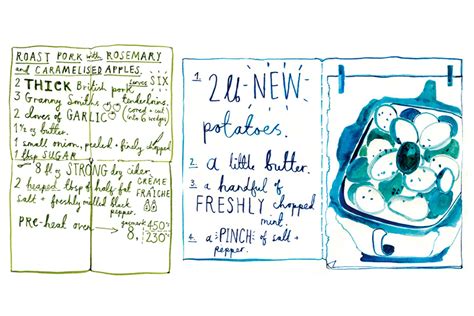 ROAST PORK with ROSEMARY
and CARAMELISED APPLES.
serves SIX
2 THICK British pork tenderloins.
3 Granny Smiths (cored + cut into 6 wedges)
2 cloves of GARLIC
1½ oz butter.
1 small onion, peeled + finely chopped
1 tbsp SUGAR
8 fl oz STRONG dry cider.
2 heaped tbsp of half fat CRÈME FRAÎCHE
salt + freshly milled black pepper.
PRE-heat oven → gasmark 8, 450° 230°C
1. 2 lb NEW
potatoes.
2. a little butter.
3. a handful of
FRESHLY chopped
mint.
4. a PINCH of salt +
pepper.